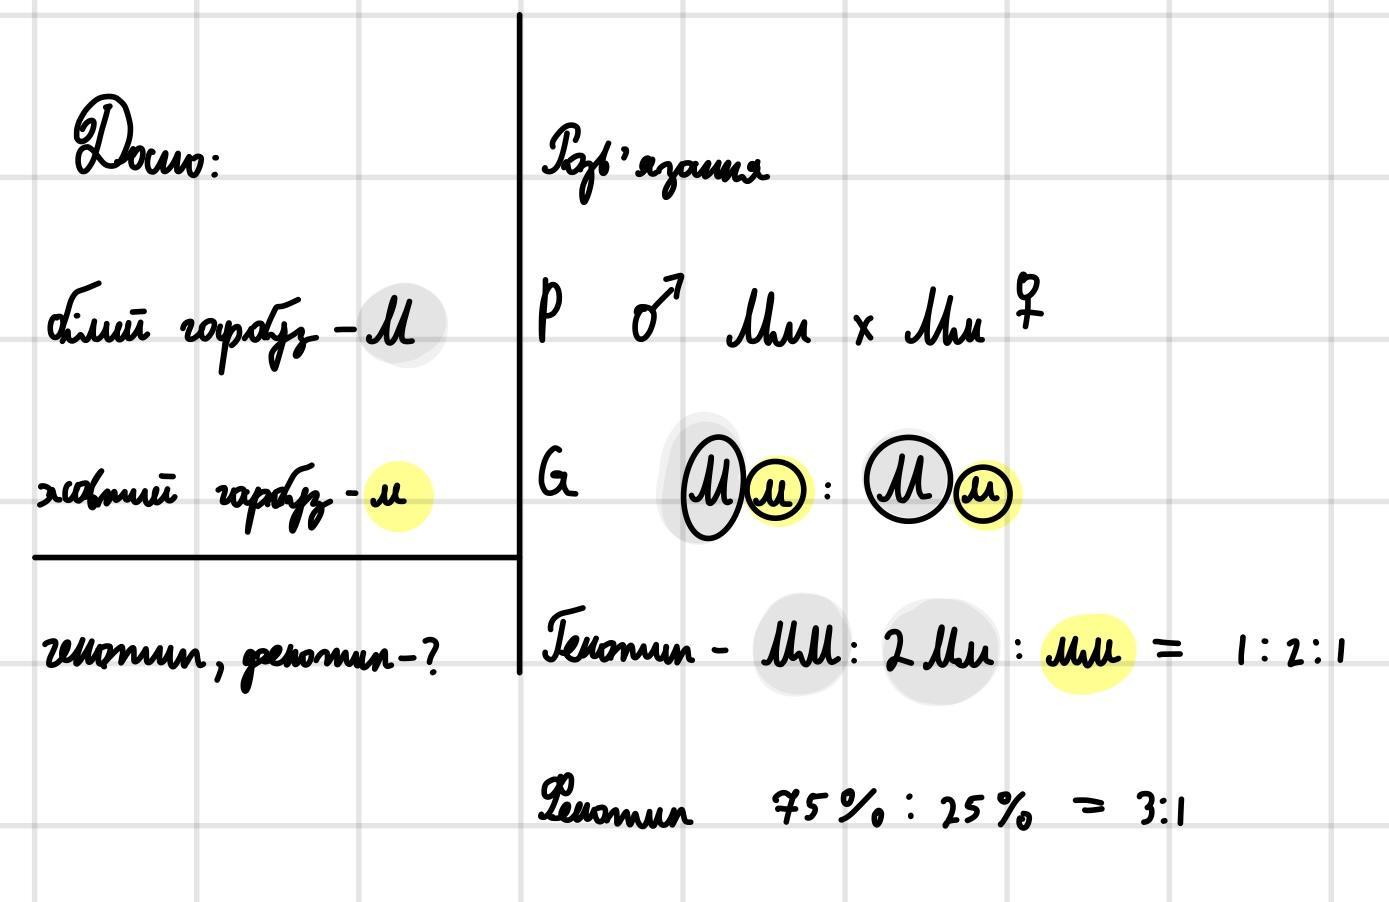 Дано:
білий гарбуз - М
жовтий гарбуз - м
генотип, фенотип - ?
Розв'язання
P ♂ Мм x Мм ♀
G М м : М м
Генотип - ММ : 2 Мм : мм = 1:2:1
Фенотип 75% : 25% = 3:1